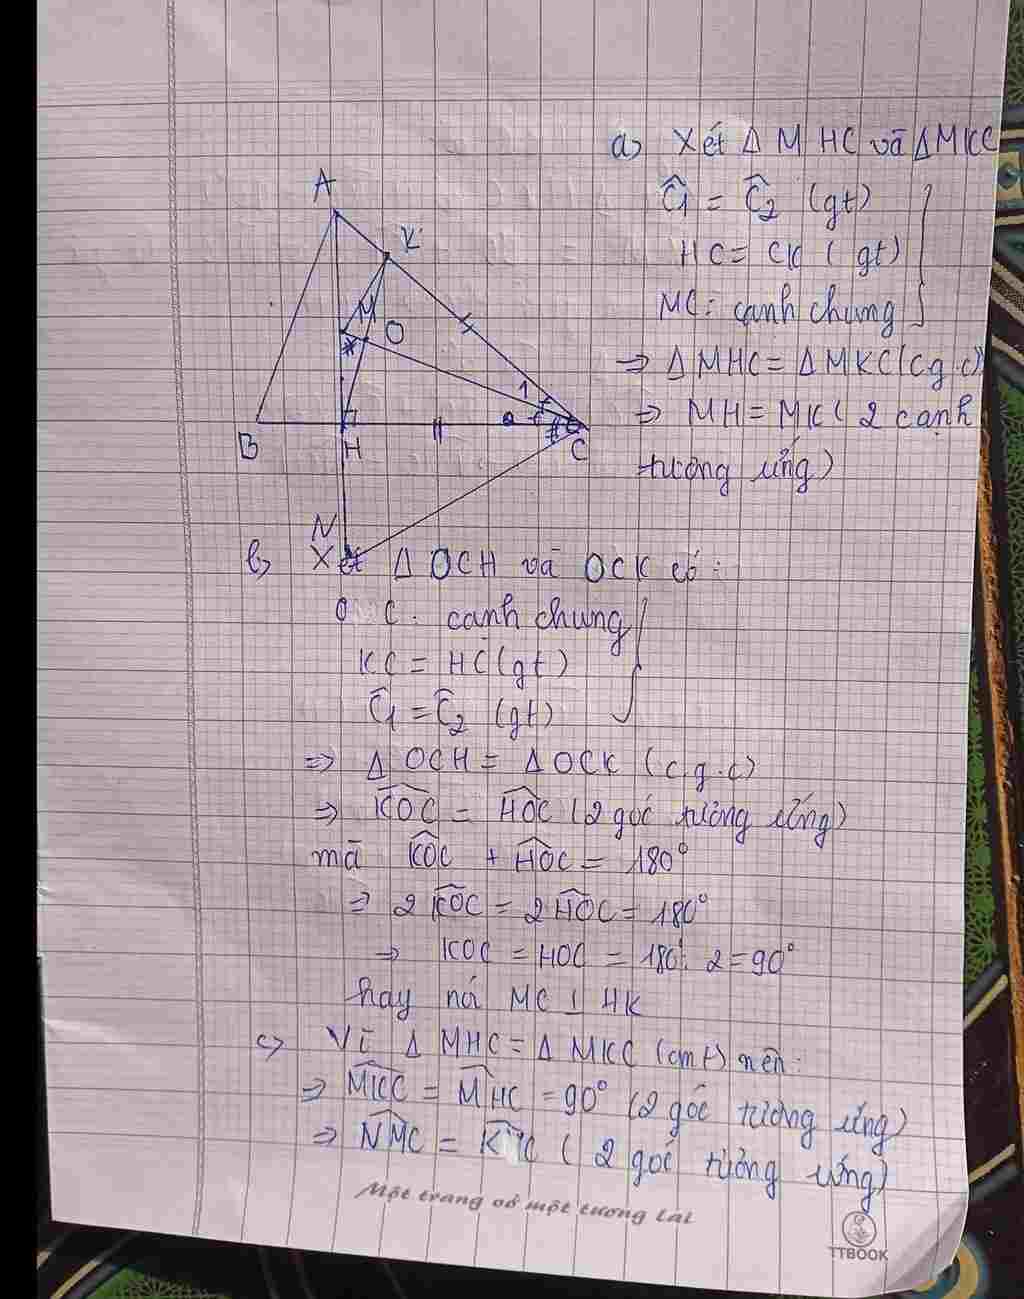 a) Xét Δ MHC và ΔMKC
Ĉ1 = Ĉ2 (gt)
HC = CK (gt)
MC: cạnh chung
⇒ Δ MHC = Δ MKC (c.g.c)
⇒ MH = MK ( 2 cạnh
tương ứng)
A
K
M
O
1
2
B
H
C
N
b) Xét Δ OCH và OCK có :
OC : cạnh chung
KC = HC (gt)
Ĉ1 = Ĉ2 (gt)
⇒ Δ OCH = Δ OCK (c.g.c)
⇒ K̂OC = ĤOC (2 góc tương ứng)
mà K̂OC + ĤOC = 180°
⇒ 2 K̂OC = 2 ĤOC = 180°
⇒ KOC = HOC = 180: 2 = 90°
hay MC ⊥ HK
c) Vì Δ MHC = Δ MKC (cmt) nên:
⇒ M̂KC = M̂HC = 90° (2 góc tương ứng)
⇒ N̂MC = ( 2 góc tương ứng)
Một trang vở một tương lai
TTBOOK